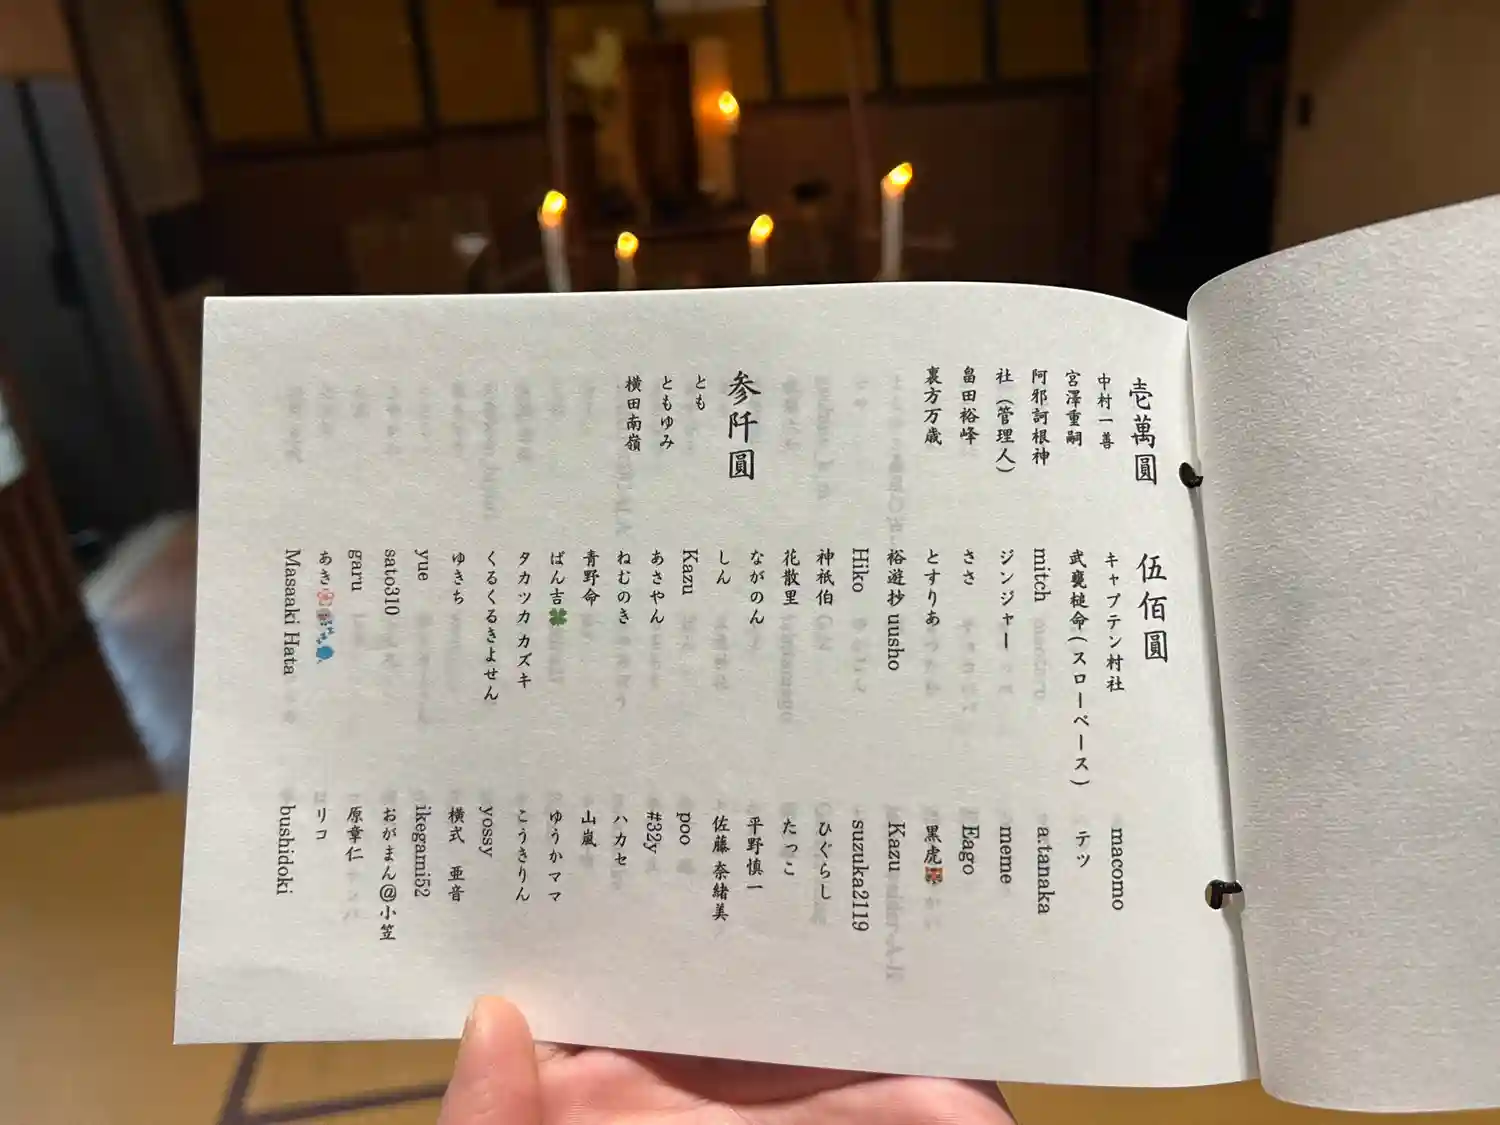 壱萬圓
中村一善
宮澤重嗣
阿邪訶根神
社（管理人）
畠田裕峰
裏方万歳
参阡圓
とも
ともゆみ
横田南嶺
伍佰圓
キャプテン村社
武甕槌命（スローペース）
mitch
ジンジャー
ささ
とすりあ
裕遊抄 uusho
Hiko
神祇伯
花散里
ながのん
しん
Kazu
あさやん
ねむのき
青野命
ばん吉🍀
タカツカ カズキ
くるくるきよせん
ゆきち
yue
sato310
garu
あき🌸
Masaaki Hata
macomo
テツ
a.tanaka
meme
Eago
黒虎🐯
Kazu
suzuka2119
ひぐらし
たっこ
平野慎一
佐藤 奈緒美
poo
#32y
ハカセ
山嵐
ゆうかママ
こうきりん
yossy
横式　亜音
ikegami52
おがまん@小笠
原章仁
リコ
bushidoki